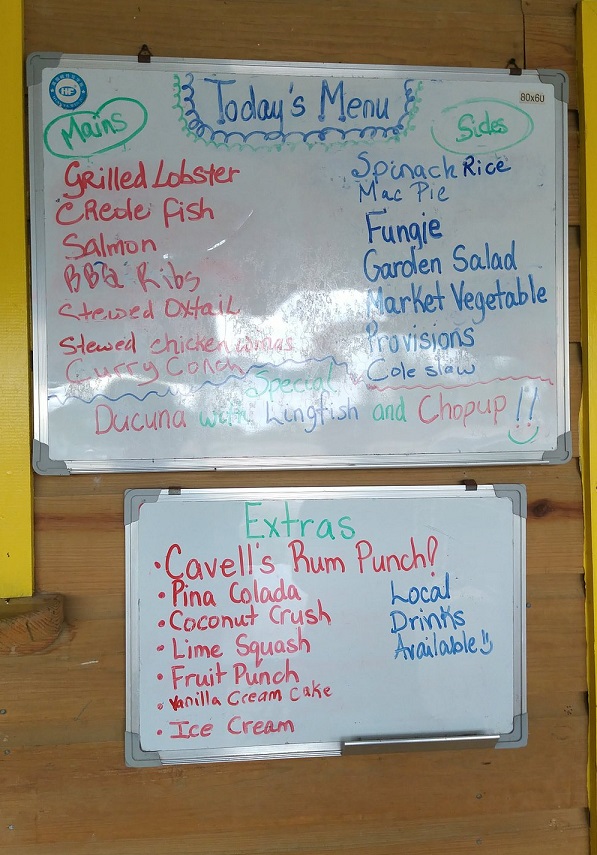 HF
80x60
Today's Menu
Mains
Grilled Lobster
Creole fish
Salmon
BBQ Ribs
Stewed Oxtail
Stewed chicken wings
Curry Conch
Sides
Spinach Rice
Mac Pie
Fungie
Garden Salad
Market Vegetable
Provisions
Cole slaw
Special
Ducuna with Lingfish and Chopup!!
Extras
• Cavell's Rum Punch!
• Pina Colada
• Coconut Crush
• Lime Squash
• Fruit Punch
• Vanilla Cream Cake
• Ice Cream
Local
Drinks
Available